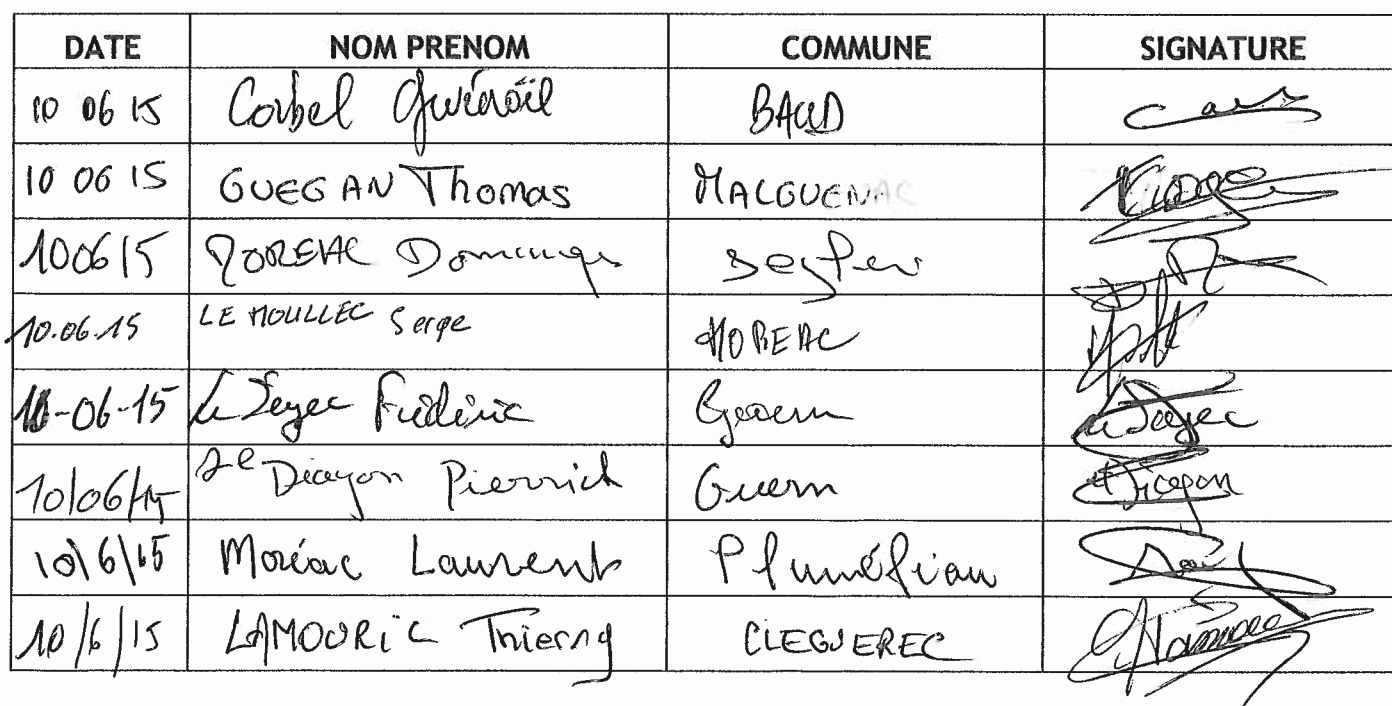 DATE NOM PRENOM COMMUNE SIGNATURE
10 06 15 Corbel Gwénaël BAUD
10 06 15 GUEGAN Thomas MALGUENAC
10 06 15 MOREAC Dominique
10.06.15 LE MOULLEC Serge MOREAC
10-06-15 Frédéric Guern
10/06/15 Le Dicayon Pierrick Guern
10/6/15 Moréac Laurent Pluméliau
10/6/15 LAMOURIC Thierry CLEGUEREC